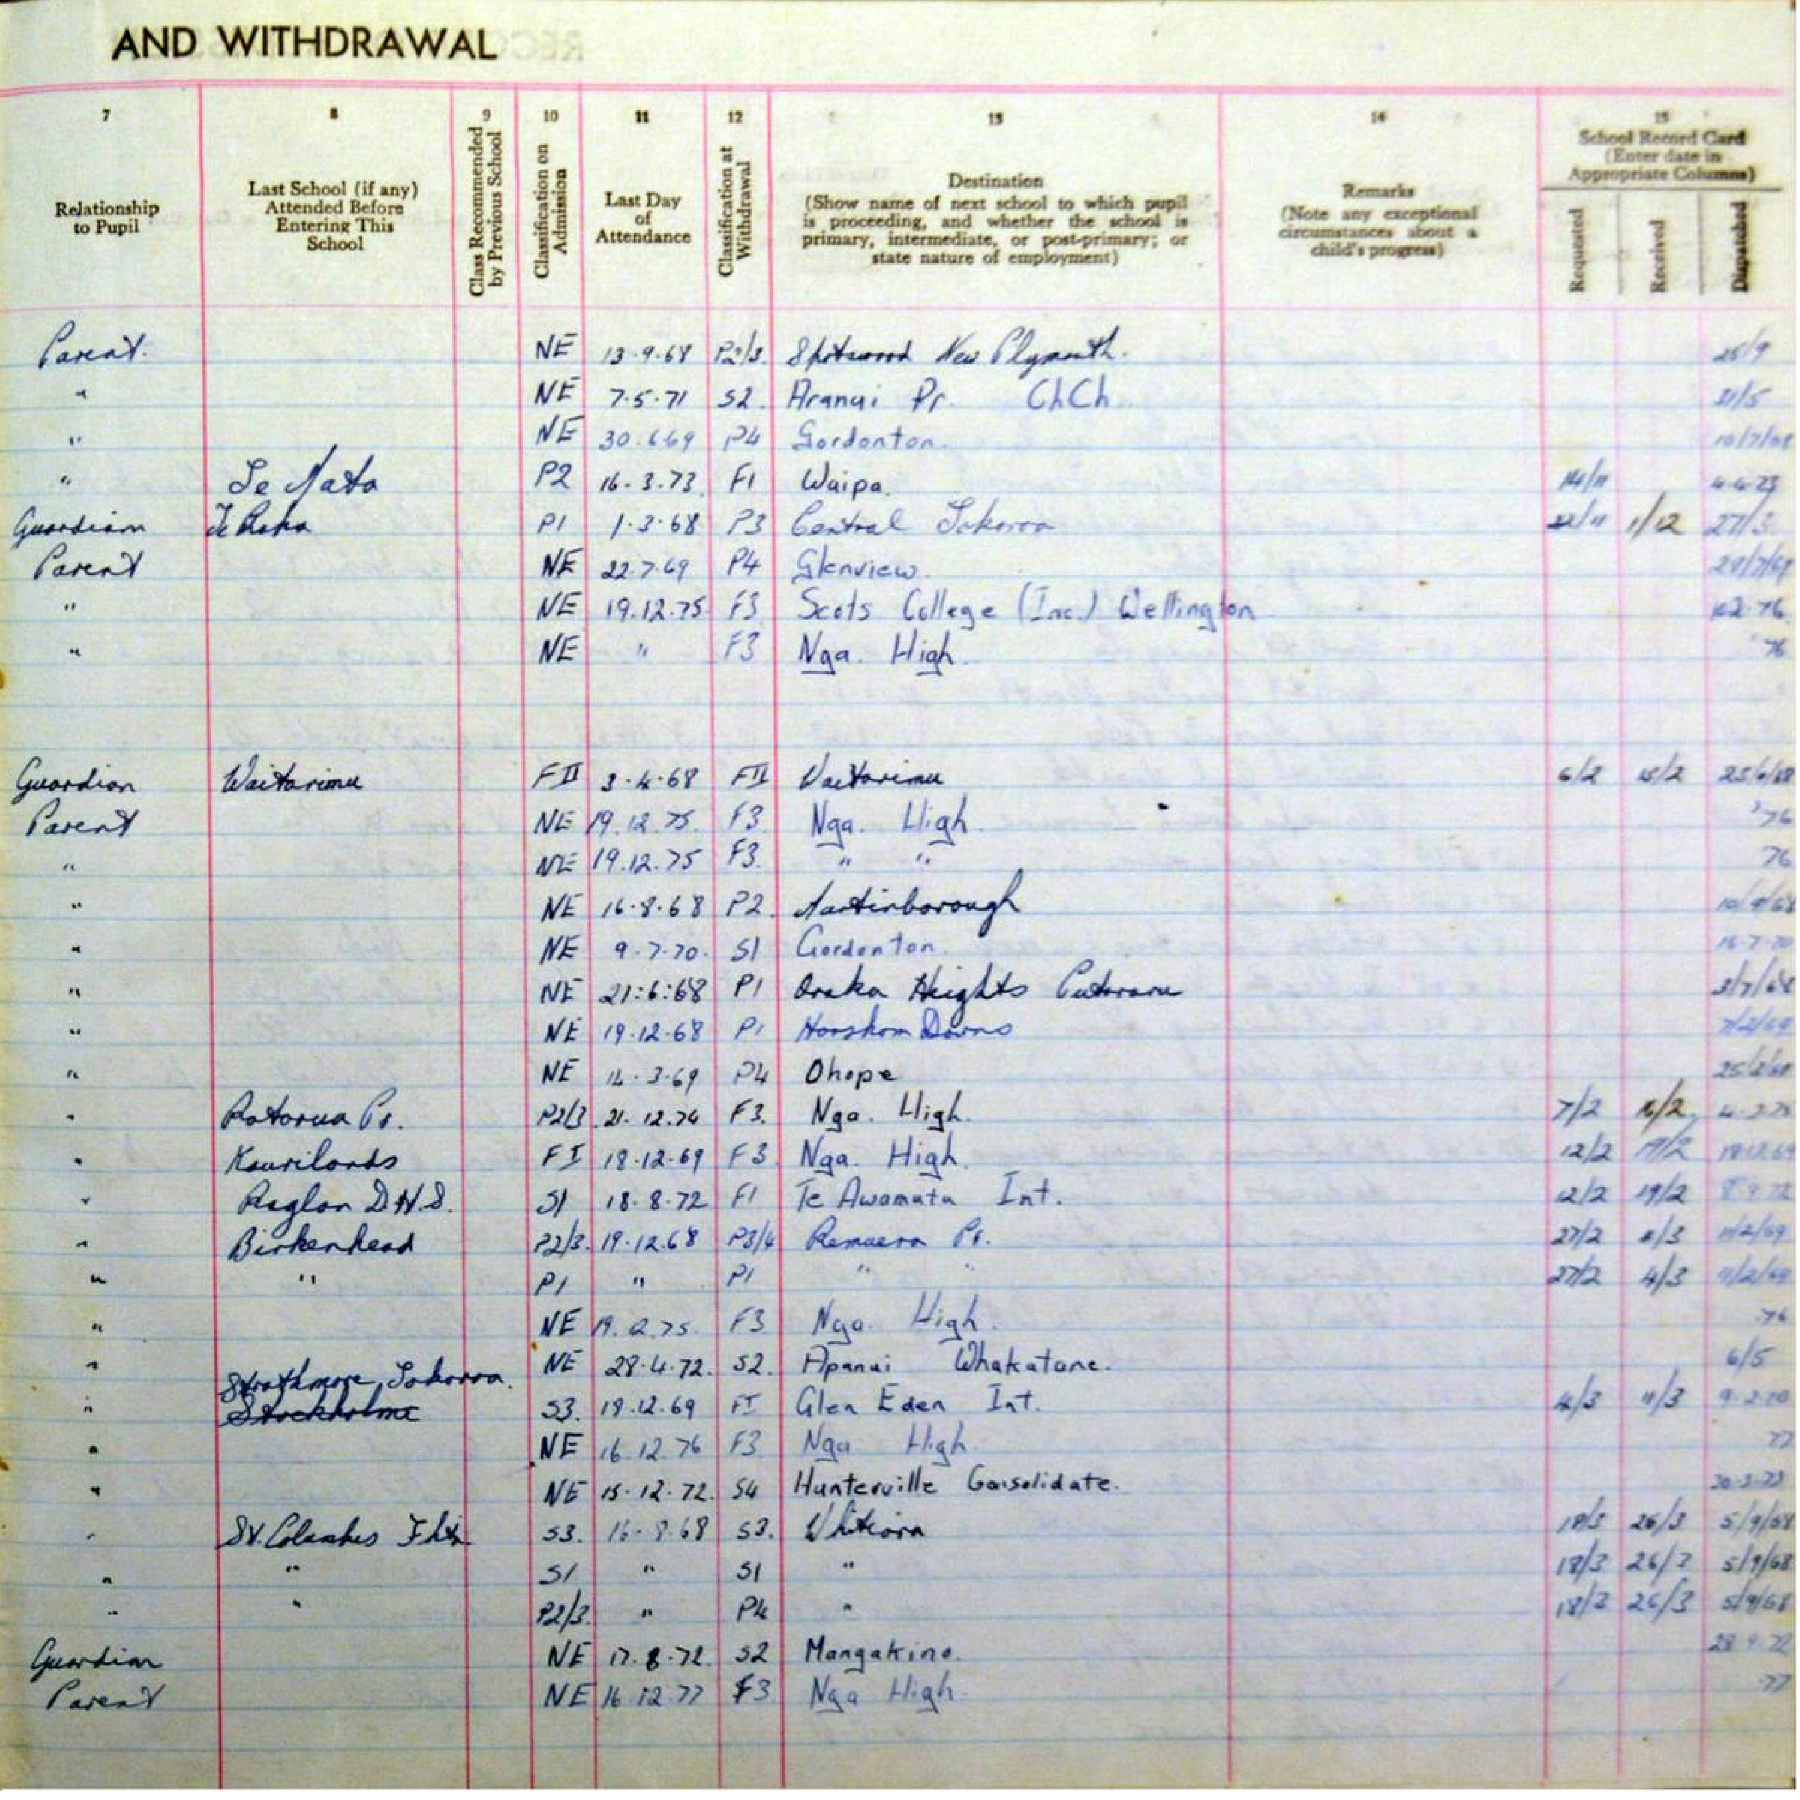 AND WITHDRAWAL
7 8 9 10 11 12 13 14 15
Relationship to Pupil
Last School (if any) Attended Before Entering This School
Class Recommended by Previous School
Classification on Admission
Last Day of Attendance
Classification at Withdrawal
Destination
(Show name of next school to which pupil is proceeding, and whether the school is primary, intermediate, or post-primary; or state nature of employment)
Remarks
(Note any exceptional circumstances about a child's progress)
School Record Card
(Enter date in Appropriate Columns)
Requested Received Dispatched
Parent. NE 13-9-68 P2/3. Spotswood New Plymouth. 25/9
" NE 7.5.71 S2. Aranui Pr. ChCh
" NE 30.6.69 P4 Gordonton. 10/7/69
" Te Mata P2 16.3.73 F1 Waipa. 14/11 4.4.73
Guardian P1 1.3.68 P3 Central Tokoroa 22/11 1/12 27/3
Parent NE 22.7.69 P4 Glenview.
" NE 19.12.75 F3 Scots College (Inc.) Wellington
" NE " F3 Nga. High. 76
Guardian Waitarimu FII 3.4.68 FII Waitarimu 6/2 15/2
Parent NE 19.12.75. F3 Nga. High 76
" NE 19.12.75 F3. " " 76
" NE 16.8.68 P2. Martinborough
" NE 9.7.70. S1 Gordonton. 16-7-70
" NE 21:6:68 P1 Oraka Heights Putaruru 3/7/68
" NE 19.12.68 P1 Horsham Downs 7/2/69
" NE 14.3.69 P4 Ohope
" Rotorua Pr. P2/3 21.12.74 F3. Nga. High. 7/2
" Kaurilands FI 18.12.69 F3 Nga. High. 12/2 17/2 18.12.69
" Raglan D.H.S. S1 18.8.72 F1 Te Awamutu Int. 12/2 19/2 8.9.72
" Birkenhead P2/3. 19.12.68 P3/4 Remuera Pr. 27/2 4/3 11/2/69
" " P1 " P1 " " 27/2 4/3 11/2/69
" NE 19.12.75. F3 Nga. High. 76
" NE 28.4.72. S2. Apanui Whakatane. 6/5
Strathmore, Tokoroa.
" Stockholme S3. 18.12.69 FI Glen Eden Int. 4/3 11/3 9.2.70
" NE 16.12.76 F3 Nga High. 77
" NE 15.12.72. S4 Hunterville Consolidate. 30.3.73
" St. Columbas S3. 16.8.68 S3. Whitiora 18/3 26/3 5/9/68
" " S1 " S1 " 18/3 26/3 5/9/68
" " P2/3. " P4 " 18/3 26/3 5/9/68
Guardian NE 17.8.72. S2 Mangakino. 28.9.72
Parent NE 16.12.77 F3 Nga High. 77